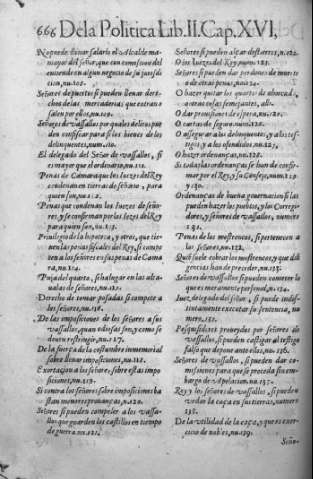 666 De la Politica Lib. II. Cap. XVI,
No puede llevar salario el Alcalde ma-
mayor del señor, que con comission del
entiende en algun negocio de su jurisdi
cion, nu.102.
Señores de puertos si pueden llevar derechos
de las mercaderias que entran o
salen por ellos, nu.109.
Señores de vassallos por quales delitos pue-
den confiscar para si los bienes de los
delinquentes, num.110.
El delegado del Señor de vassallos, si
es mayor que el ordinario, nu.111.
Penas de Camara que los Iuezes del Rey
condenan en tierras de señorio, para
quien son, nu.112.
Penas que condenan los Iuezes de seño-
res, y se confirman por los Iuezes del Rey
para quien son, nu.113.
Privilegio de la bezerra, y otros, que tie-
nen las penas fiscales del Rey, si compe-
ten a los señores en sus penas de Cama-
ra, nu.114.
Puja del quarto, si ha lugar en las alca-
ualas de señores, nu.115.
Derecho de tomar posadas si compete a
los señores, nu.116.
De las imposiciones de los señores a sus
vassallos, quan odiosas son, y como se
deven restringir, nu.117.
De la fuerça de la costumbre inmemorial
sobre llevar imposiciones, nu.118.
Exortacion a los señores sobre estas impo
siciones, nu.119.
Si contra los señores sobre imposiciones bas
tan menores provanças, n.120.
Señores si pueden compeler a los vassa-
llos que guarden los castillos en tiempo
de guerra, nu.121.
Señores si pueden alçar destierros, n.122.
O los Iuezes del Rey, num.123.
Señores si pueden dar perdones de muerte
o de otras penas, nu.124.
O hazer quitas los quartos de ahorcados,
o otras cosas semejantes, alli.
O dar provisiones de espera, nu.
O cartas de seguro, num.
O assegurar a los delinquentes, y a los tes-
tigos, y a los ofendidos, nu.127.
O hazer ordenanças, nu.128.
Si todas las ordenanças se han de confir-
mar por el Rey, y su Consejo, num.129
y 130.
Ordenanças de buena governacion si las
pueden hazer los pueblos, y los Corregi-
dores, y señores de vassallos, numero
131.
Penas de los mostrencos, si pertenecen a
los señores, nu.132.
Quien suele cobrar los mostrencos, y que dili
gencias han de preceder, nu.133.
Señores de vassallos si pueden cometer lo
que es meramente personal, n.134.
Iuez delegado del señor, si puede indis-
tintamente executar su sentencia, nu
mero, 135.
Pesquisidores proveidos por señores de
vassallos, si pueden castigar al testigo
falso que depone ante ellos, nu.136.
Señores de vassallos, si pueden dar co-
missiones para que se proceda sin em-
bargo de Apelacion, nu.137.
Rey y los señores de vassallos, si pueden
vedar la caça en sus tierras, numero
138.
De la vtilidad de la caça, y que es exer-
cicio de nobles, nu.139.
Seño-